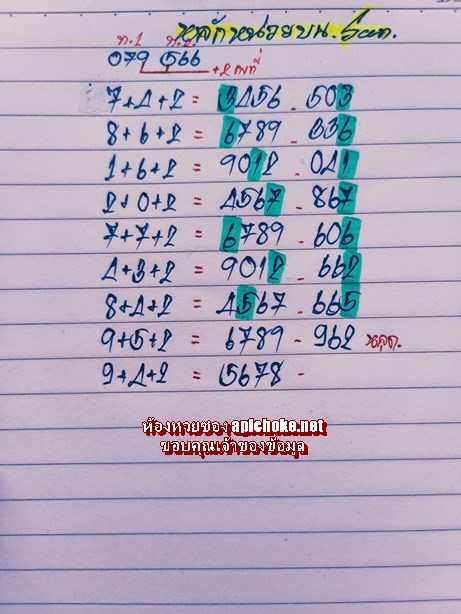 หลักหน่วยบน.
ท.1 ท.2
079 566 +2 คงที่
7+4+2 = 3456 - 503
8+6+2 = 6789 - 336
1+6+2 = 9012 - 041
2+0+2 = 4567 - 867
7+7+2 = 6789 - 606
4+3+2 = 9012 - 662
8+4+2 = 4567 - 665
9+5+2 = 6789 - 962 หลุด.
9+4+2 = 5678 -
ห้องหวยซอง apichoke.net
ขอบคุณเจ้าของข้อมูล